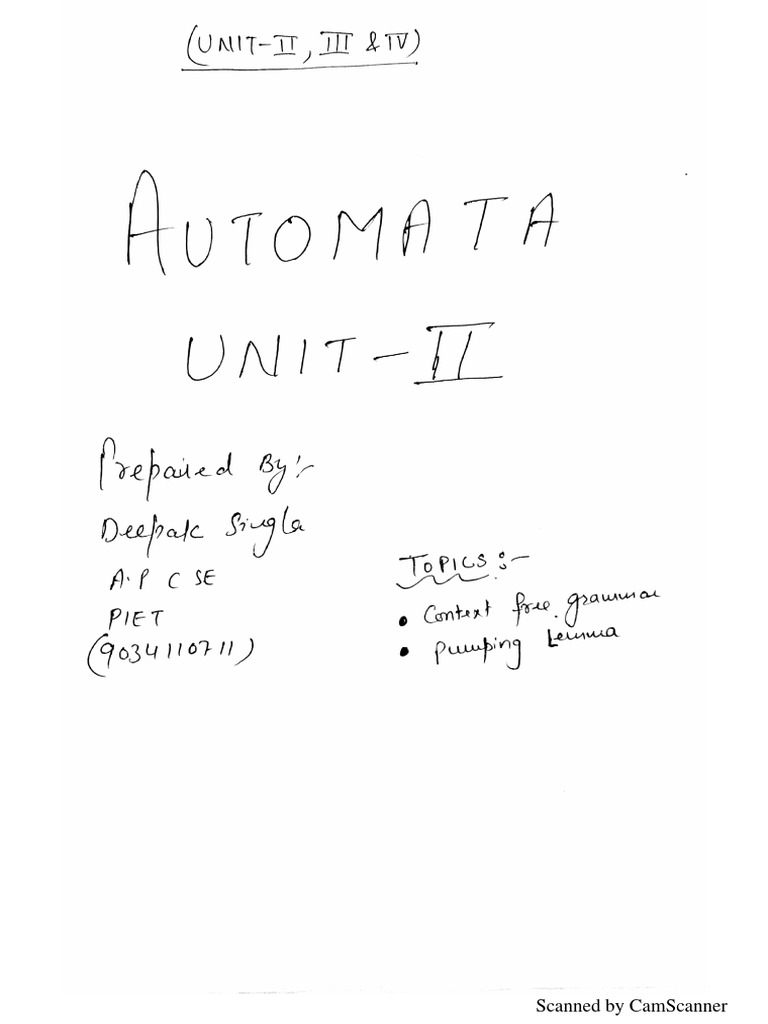 (UNIT-II, III & IV)
AUTOMATA
UNIT-II
Prepaired By:-
Deepak Singla
A.P CSE
PIET
(9034110711)
TOPICS:-
• Context free grammar
• Pumping Lemma
Scanned by CamScanner